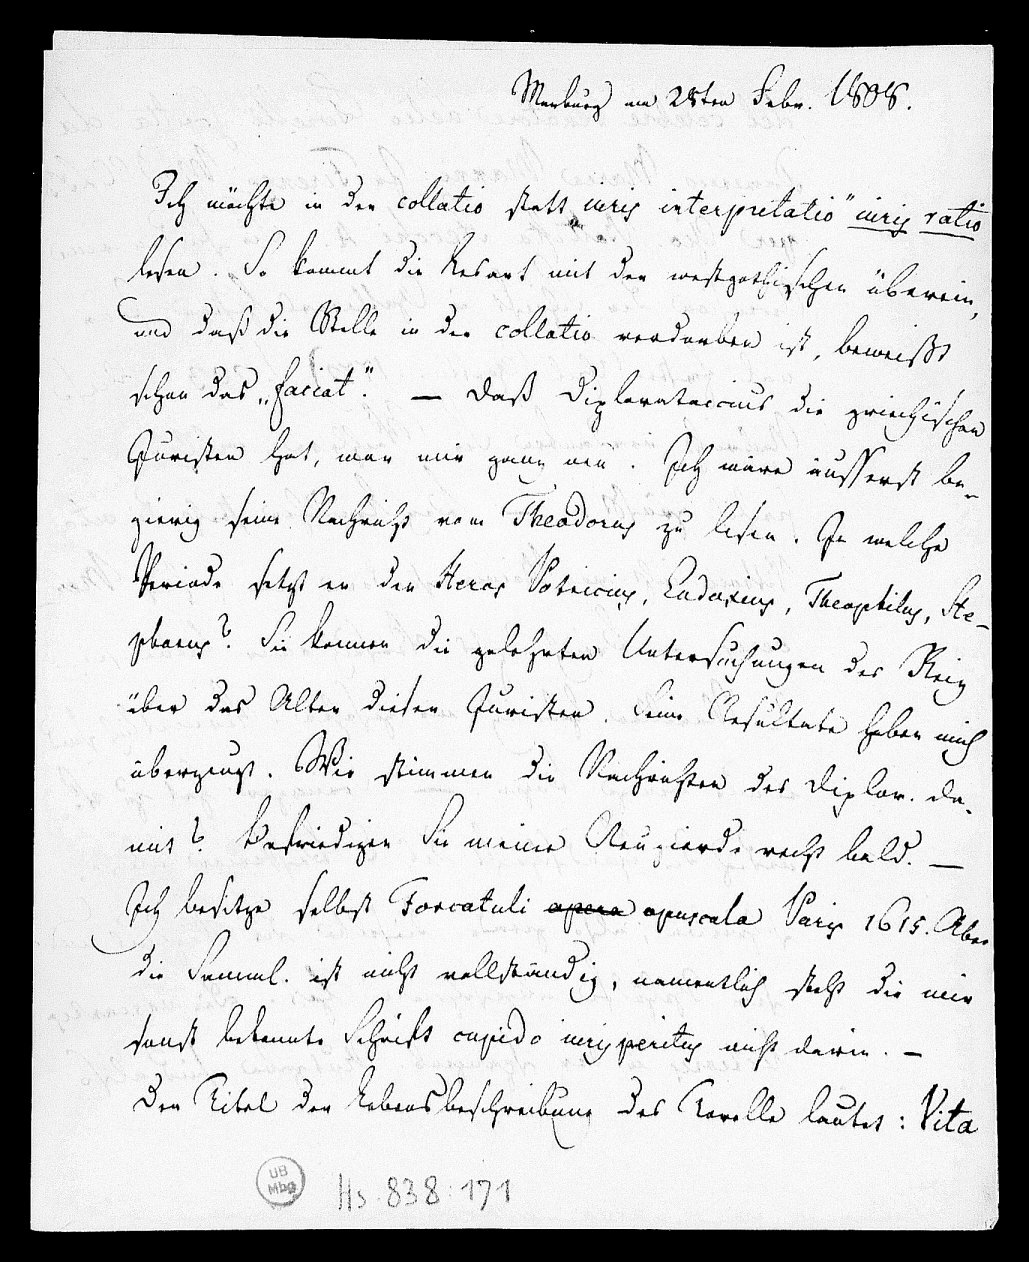 Marburg am 28ten Febr. 1808.
Ich möchte in der collatio statt iuris interpretatio "iuris ratio
lesen. So kommt die Lesart mit der westgothischen überein,
und daß die Stelle in der collatio verdorben ist, beweißt
schon das „faciat". — Daß Diplovataccius die griechischen
Juristen hat, war mir ganz neu. Ich wäre äusserst be-
gierig seine Nachricht vom Theodorus zu lesen. In welche
Periode setzt er den Heros Patricius, Eudoxius, Theophilus, Ste-
phanus? Sie kennen die gelehrten Untersuchungen des Reiz
über das Alter dieser Juristen. Seine Resultate haben mich
überzeugt. Wie stimmen die Nachrichten des Diplov. da-
mit? Befriedigen Sie meine Neugierde recht bald. —
Ich besitze selbst Forcatuli opera opuscula Paris 1615. Aber
die Samml. ist nicht vollständig, namentlich steht die mir
sonst bekannte Schrift cupido iurisperitus nicht darin. —
Der Titel der Lebensbeschreibung des Torelli lautet: Vita
UB
Mbg
Hs. 838:171